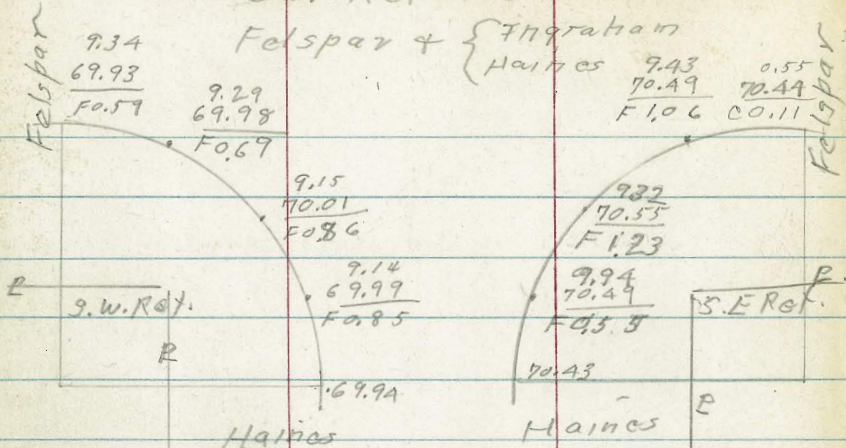 Felspar & { Ingraham
Haines
Felspar
9.34
69.93
F0.59
9.29
69.98
F0.69
9.15
70.01
F0.86
9.14
69.99
F0.85
69.94
S.W. Ret.
Haines
Felspar
0.55
70.44
C0.11
9.43
70.49
F1.06
932
70.55
F1.23
9.94
70.49
F0.55
70.43
S.E Ret.
Haines